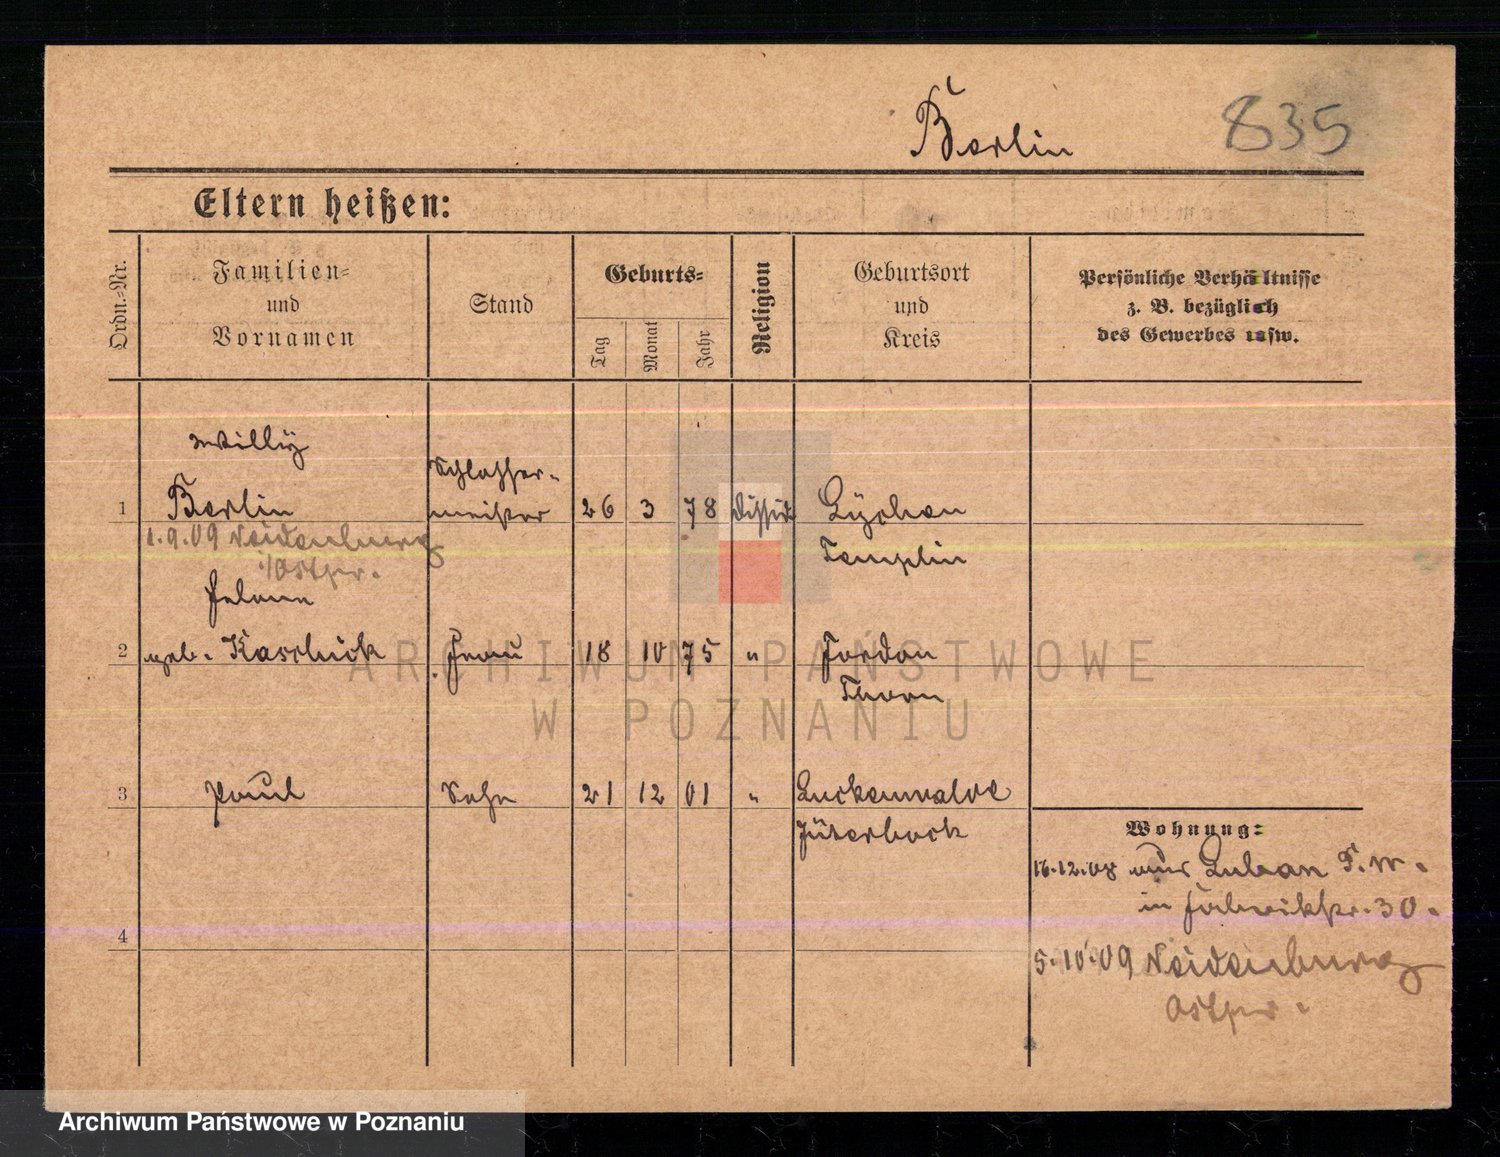 Berlin 835
Eltern heißen:
Ordn.-Nr.
Familien-
und
Vornamen
Stand
Geburts-
Tag
Monat
Jahr
Religion
Geburtsort
und
Kreis
Persönliche Verhältnisse
z. B. bezüglich
des Gewerbes usw.
Willy
Schlosser-
1 Berlin meister 26 3 78 Dissid. Lychen
1.9.09 Neidenburg
i/Ostpr. Templin
Helene
2 geb. Kaschick Frau 18 10 75 " Jordan
Thorn
3 Paul Sohn 21 12 01 " Luckenwalde
Jüterbock
Wohnung:
16.12.08 aus Luban
in Fabrikstr. 30.
4
5.10.09 Neidenburg
Ostpr.
ARCHIWUM PAŃSTWOWE
W POZNANIU
Archiwum Państwowe w Poznaniu